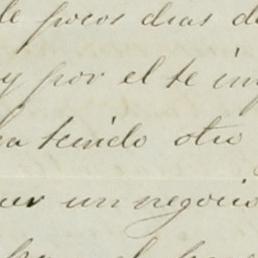 de pocos dias d
y por el te im
ha tenido otro
cer un negocio